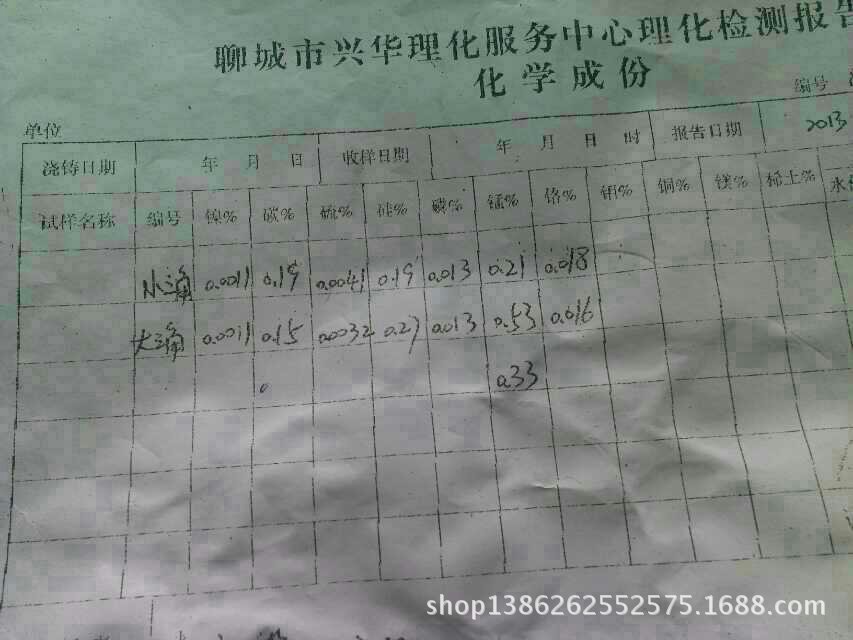 聊城市兴华理化服务中心理化检测报告
化学成份
编号
单位
浇铸日期 年 月 日 收样日期 年 月 日 时 报告日期 2013
试样名称 编号 镍% 碳% 硫% 硅% 磷% 锰% 铬% 钼% 铜% 镁% 稀土%
小三角 0.0011 0.19 0.0041 0.19 0.013 0.21 0.018
大三角 0.0011 0.15 0.0032 0.27 0.013 0.53 0.016
0.33
shop1386262552575.1688.com